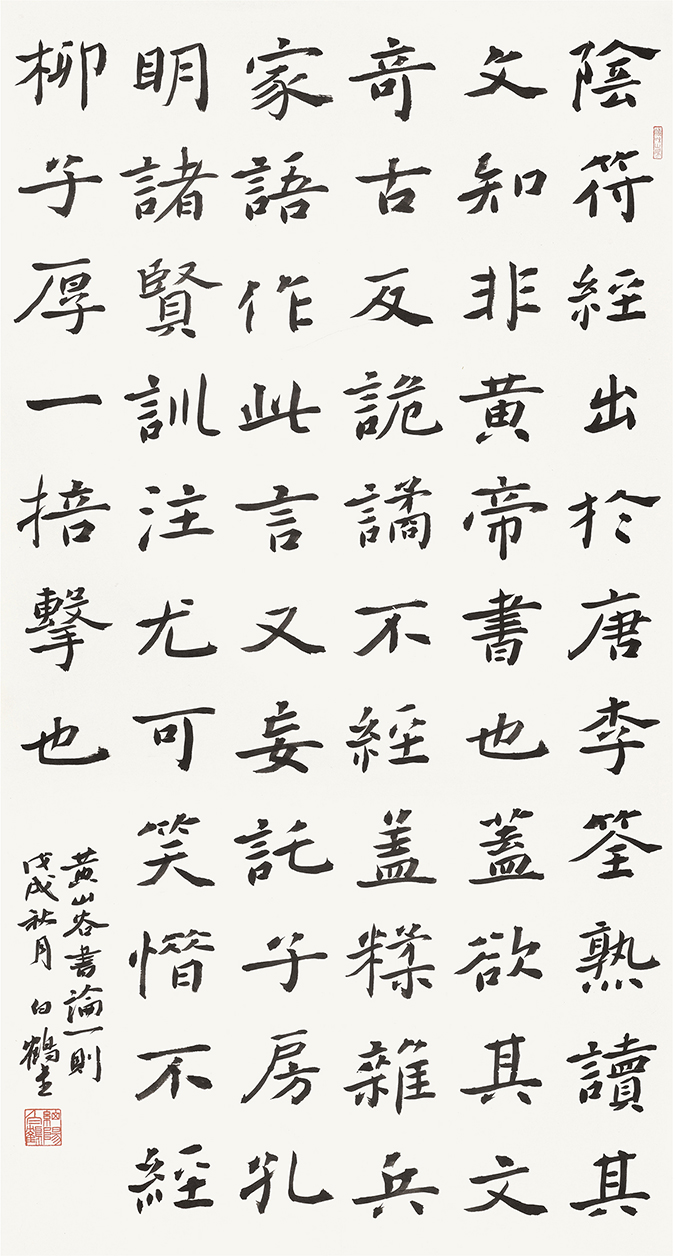 陰符經出於唐李筌熟讀其
文知非黄帝書也蓋欲其文
奇古反詭譎不經盖糅雜兵
家語作此言又妄託子房孔
明諸賢訓注尤可笑惜不經
柳子厚一掊擊也
黄山谷書論一則
戊戌秋月 白鶴書